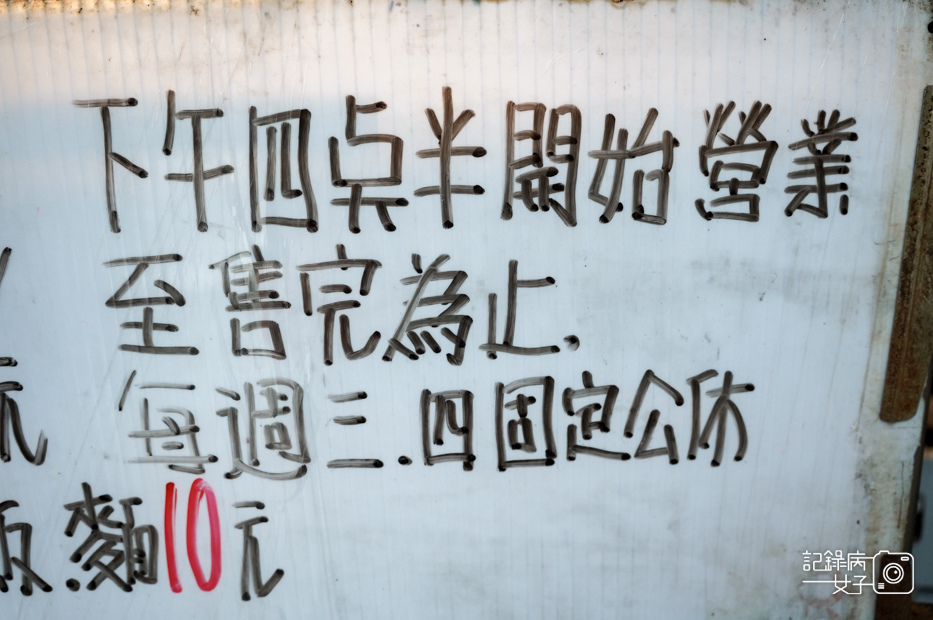 下午四点半開始營業
至售完為止.
每週三.四固定公休
飯.麵10元
記錄病
女子